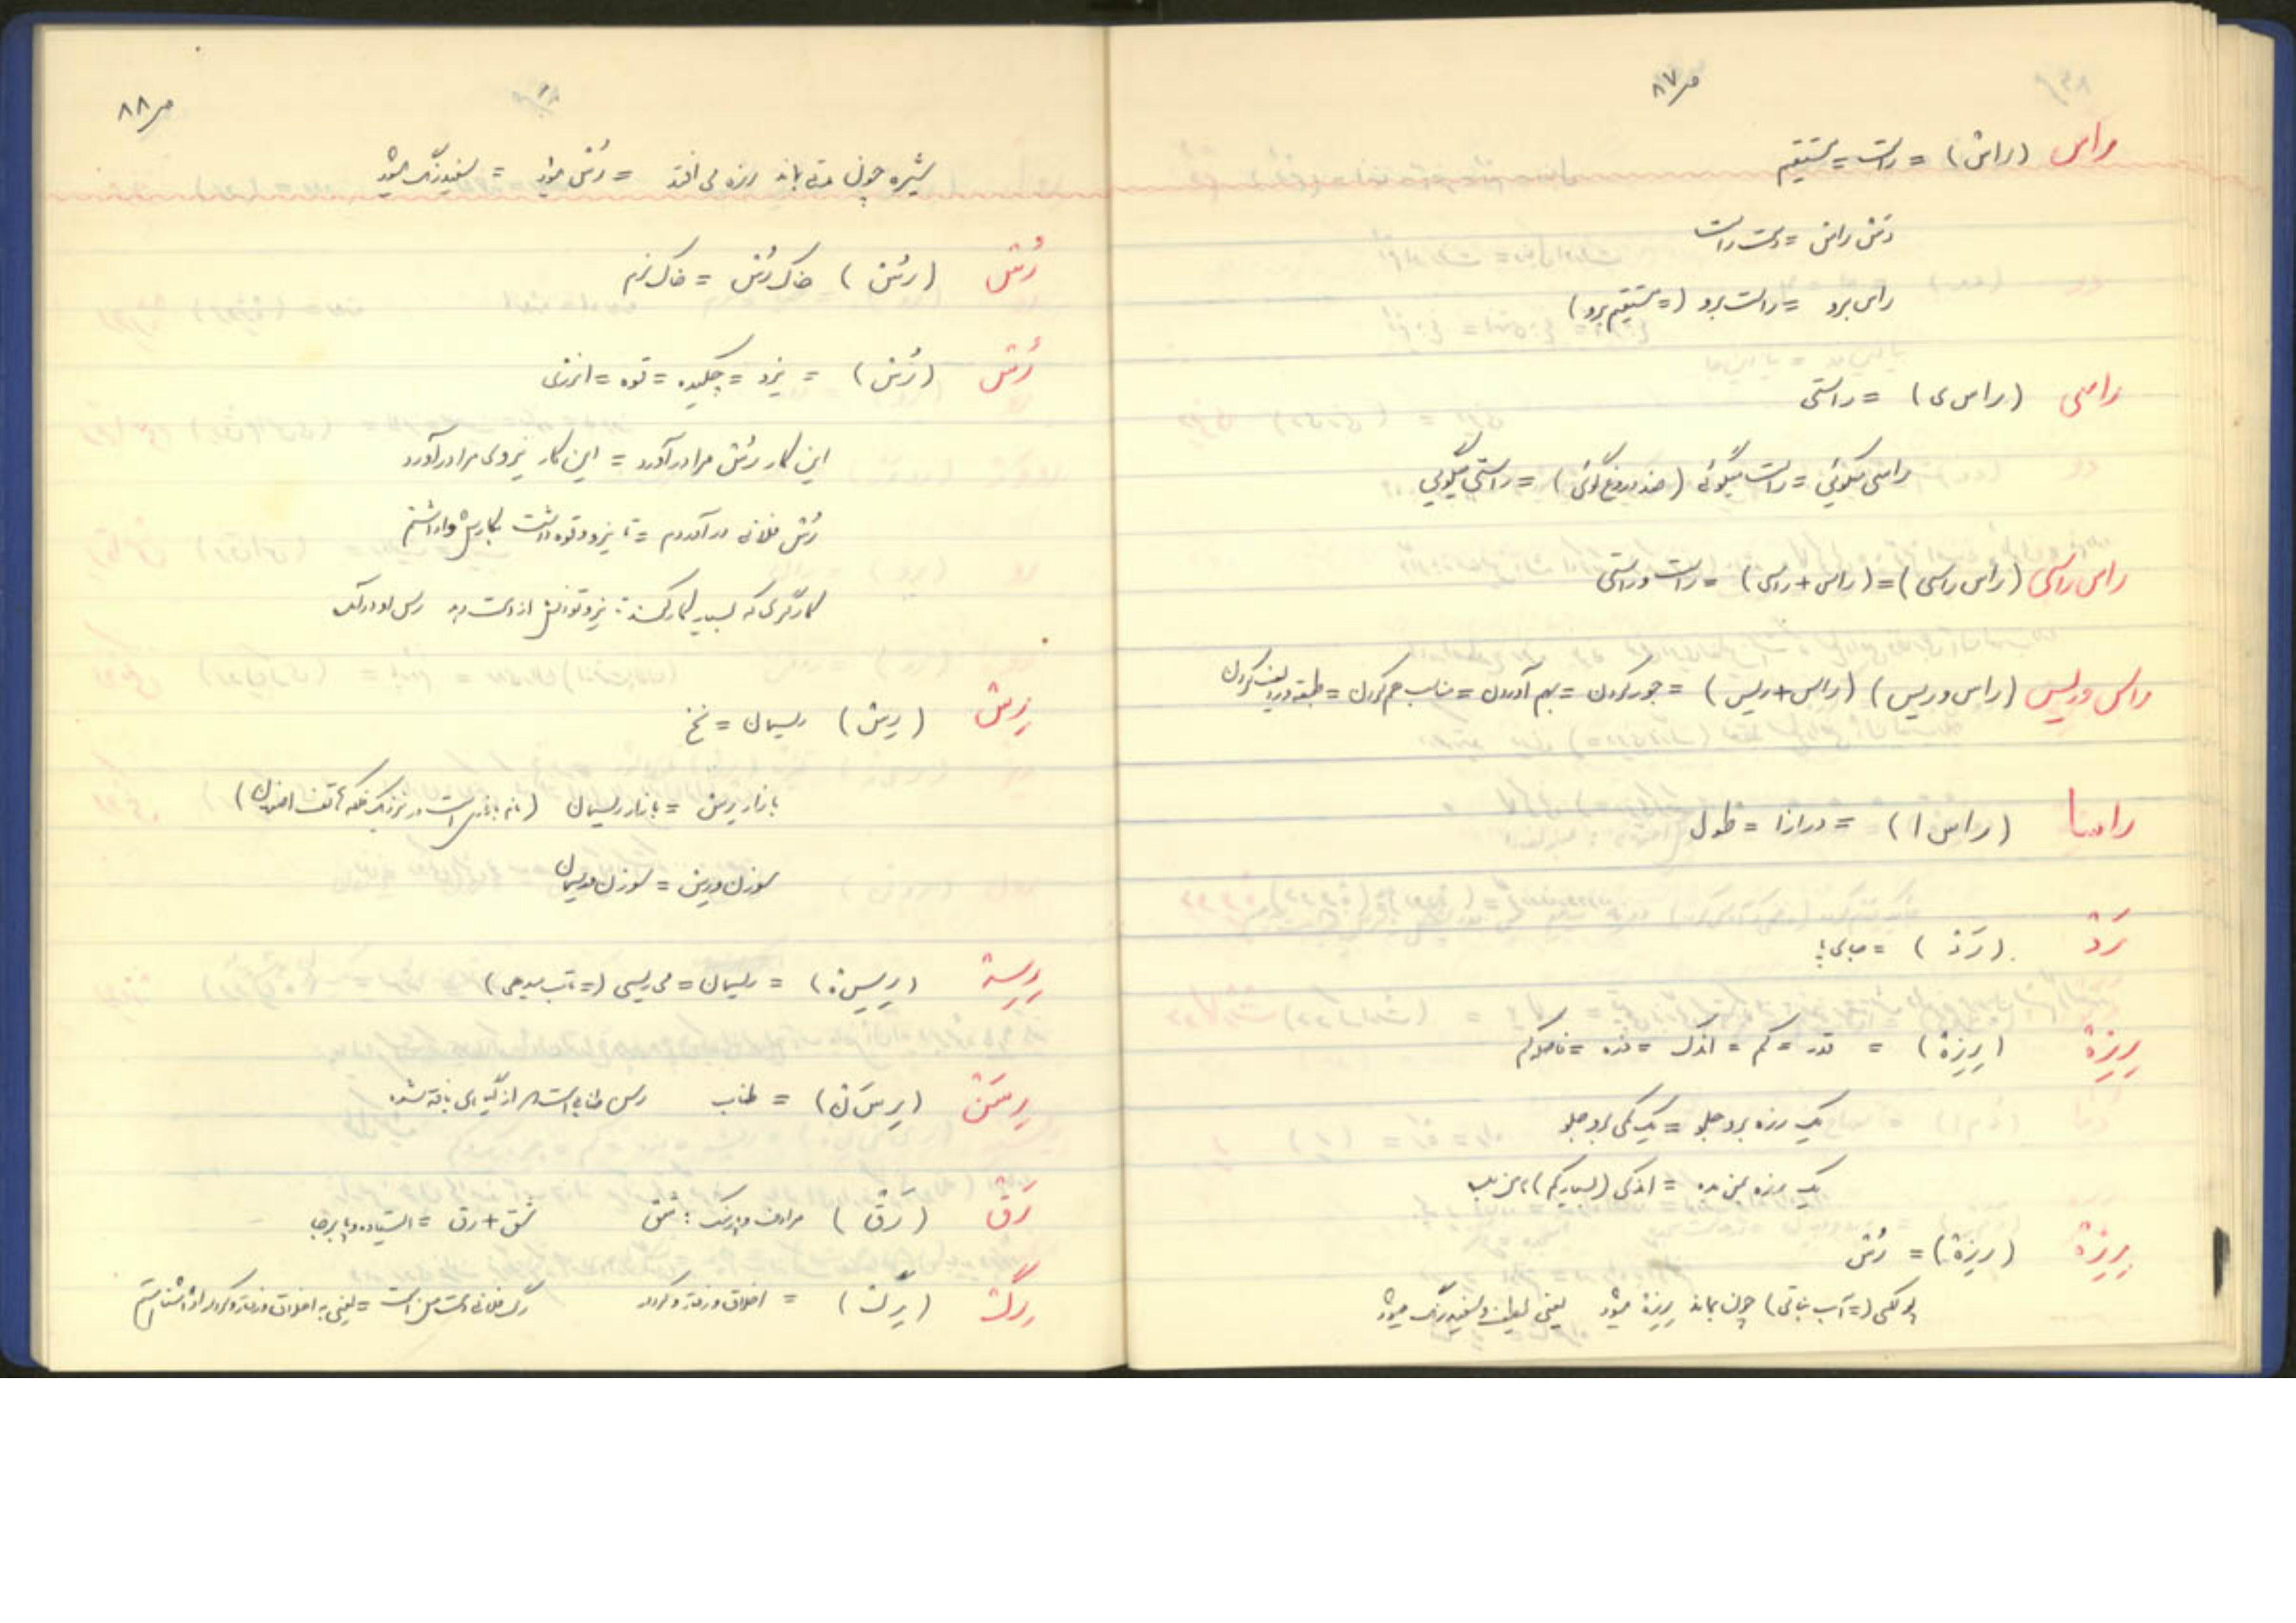 ص ۸۷
راس (راش) = راست = مستقیم
دس راس = دست راست
راس برو = راست برو (= مستقیم برو)
راسی (راس ی) = راستی
راسی میگوئی = راست میگوئی (ضد دروغ گوئی) = راستی میگویی
راس راسی (راس راسی) = (راس + راسی) = راست و راستی
راس و ریس (راس و ریس) (راس + ریس) = جور کردن = بهم آوردن = مناسب هم کردن =
راسا (راس ا) = درازا = طول
رَد (رَد) = جای پا
رِیزهٔ (رِیزهٔ) = قدر = کم = اندک = ذره =
یک رزه برو جلو = یک کمی برو جلو
یک رزه بمن بده = اندکی (بسیار کم) بمن بده
رِیزهٔ (ریزهٔ) = رُس
(= آب نباتی) چون بماند ریزهٔ میشود یعنی سفید رنگ میشود
ص ۸۸
شیره چون مدتی بماند رزه می افتد = رُس میشود = سفید رنگ میشود
رُس (رُس) خاک رُس = خاک نرم
رُس (رُس) = نیرو = چکیده = قوه = انرژی
این کار رُس مرا درآورد = این کار نیروی مرا درآورد
رُس فلانی درآوردم = تا نیرو و قوه داشت بکارش واداشتم
کارگری که بسیار کار کند نیرو توانش از دست
رِس (رِس) ریسمان = نخ
بازار رِس = بازار ریسمان
سوزن و رِس = سوزن و ریسمان
رِیسهٔ (رِیسهٔ) = ریسمان = می ریسی (= تاب میدهی)
رِسَن (رِسَ ن) = طناب رسن طنابی است که از گیاهی بافته شده
رَق (رَق) مرادف شَق شَق + رق = ایستاده و پابرجا
رگ (رگ) = اخلاق و رفتار و کردار رگ فلانی دست من است = یعنی به اخلاق و رفتار و کردار او آشنا هستم